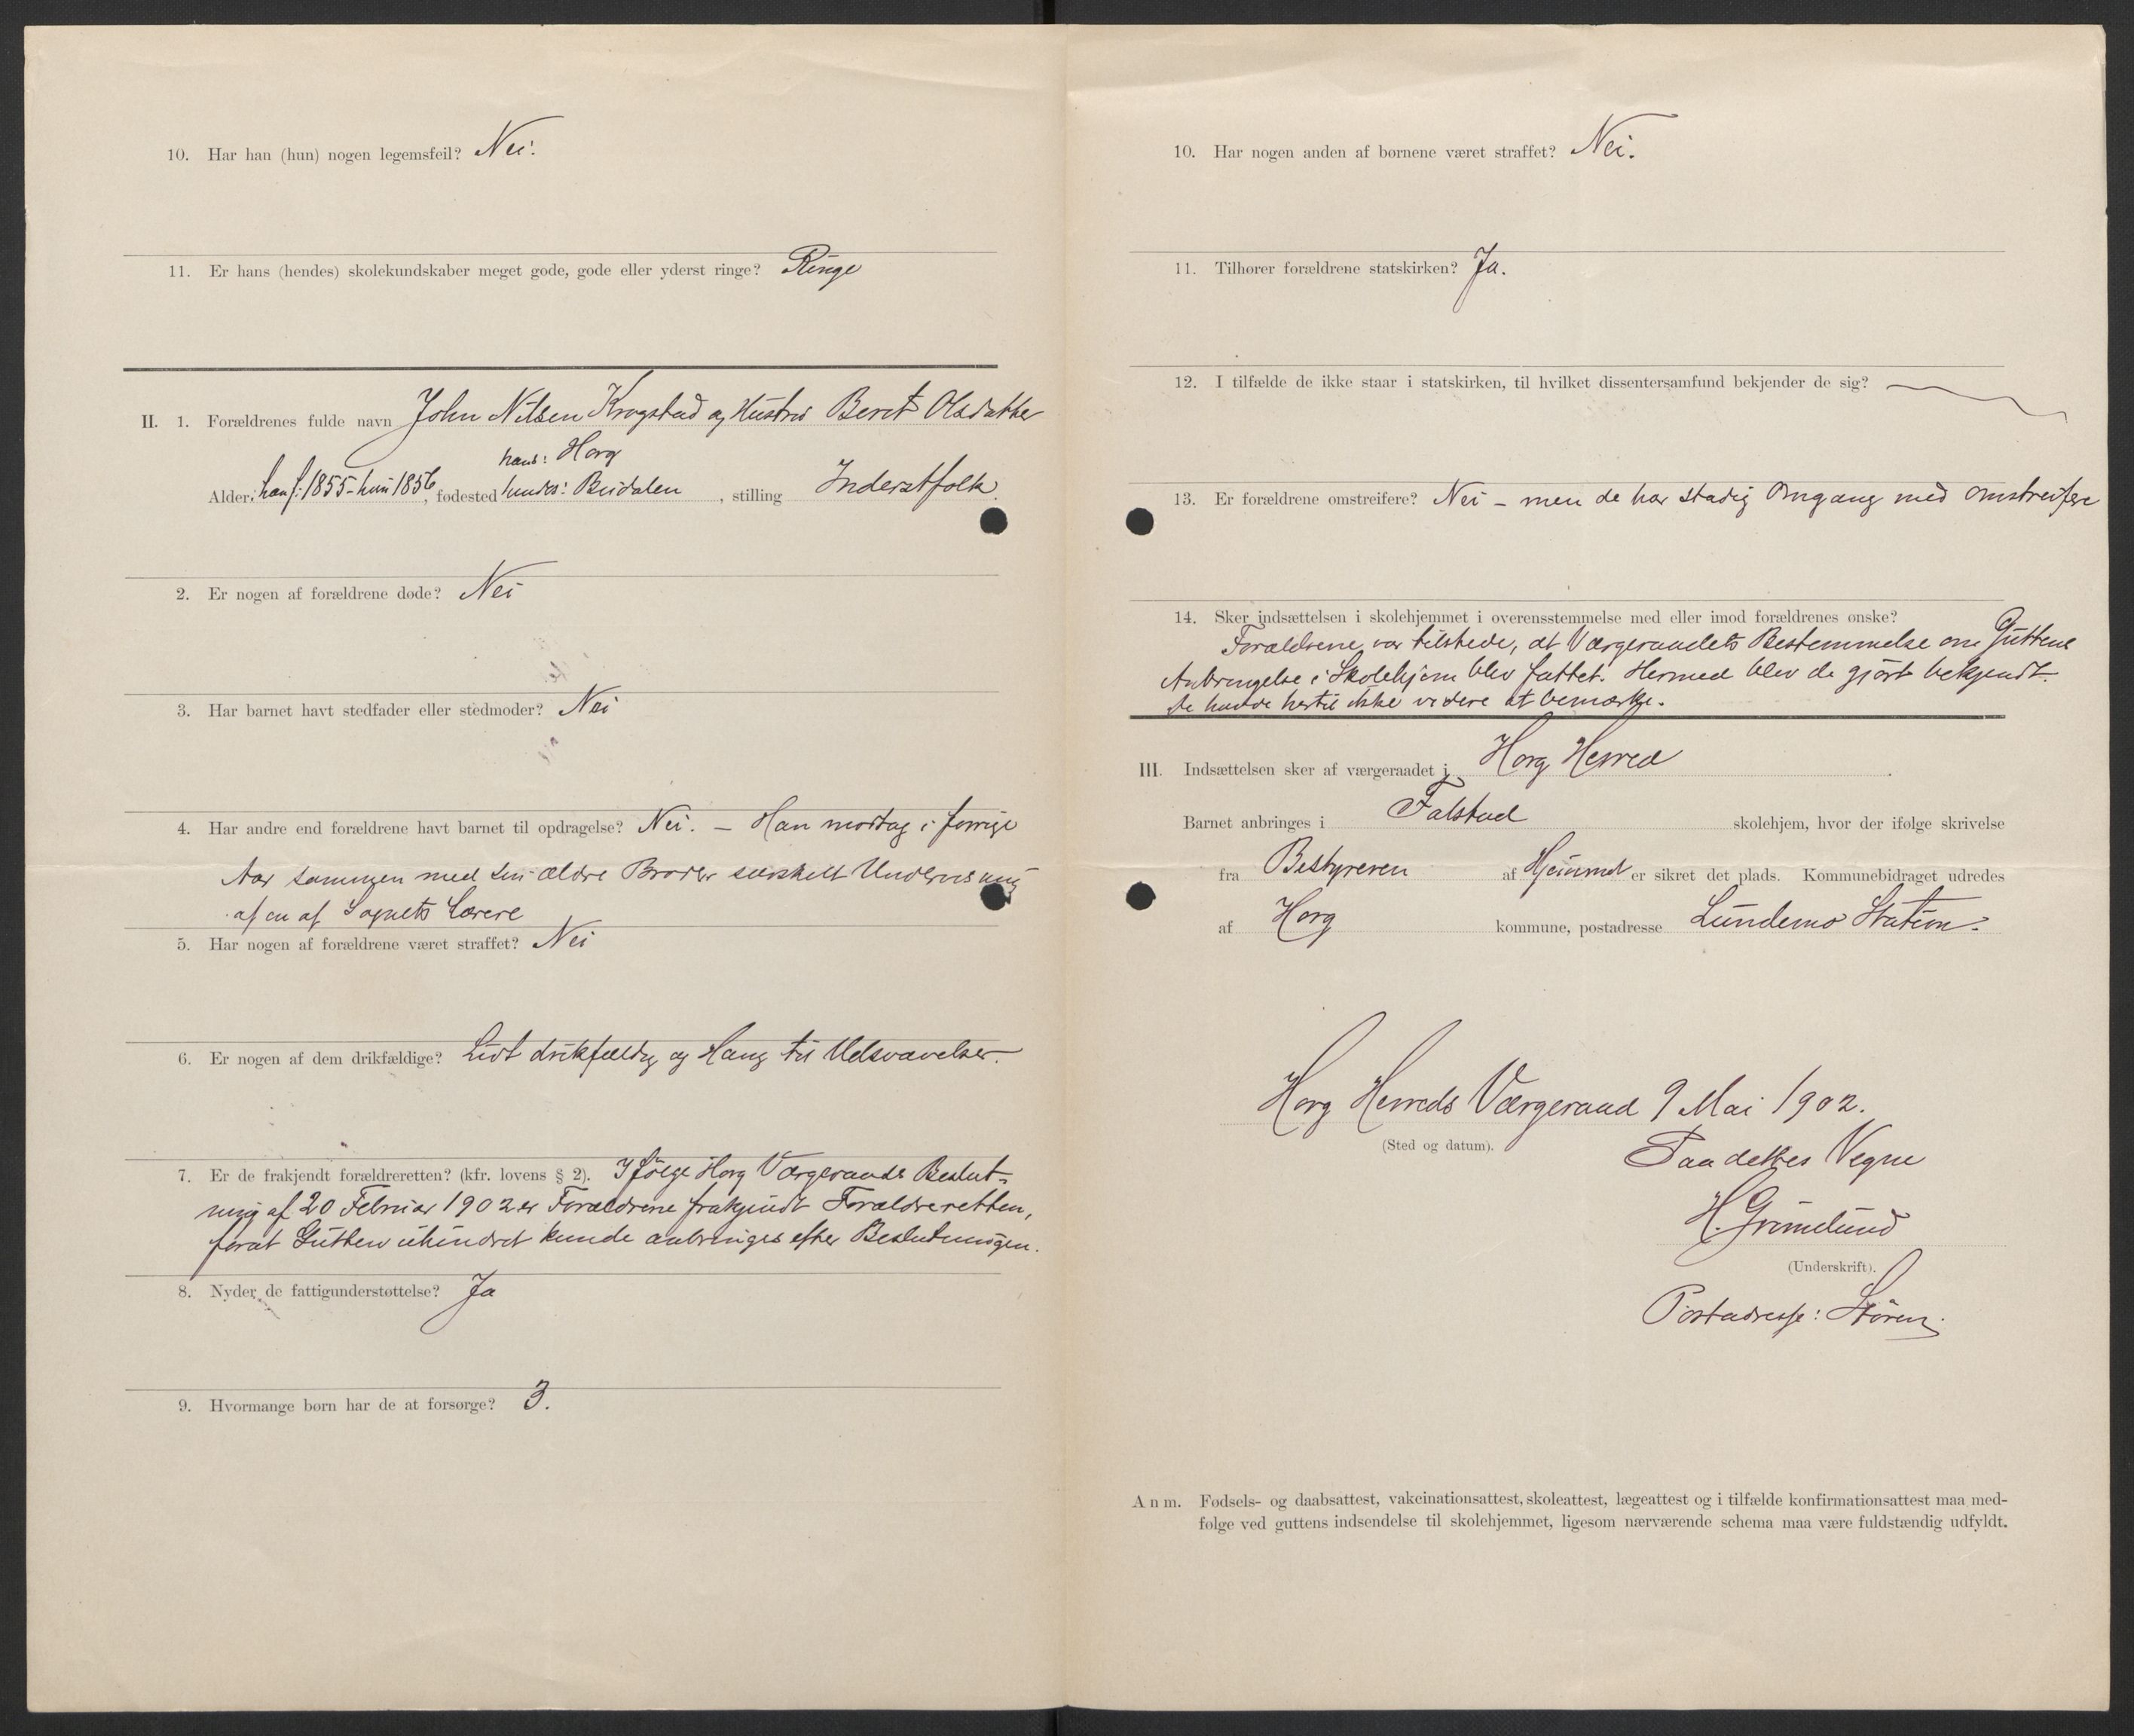 10. Har han (hun) nogen legemsfeil? Nei.
11. Er hans (hendes) skolekundskaber meget gode, gode eller yderst ringe? Ringe
II. 1. Forældrenes fulde navn John Nilsen Krogstad og Hustru Beret Olsdatter
hans: Horg
Alder: han f: 1855 - hun 1856, fødested hendes: Budalen, stilling Inderstfolk.
2. Er nogen af forældrene døde? Nei
3. Har barnet havt stedfader eller stedmoder? Nei
4. Har andre end forældrene havt barnet til opdragelse? Nei. – Han modtog i forrige
Aar sammen med sin ældre Broder særskilt Undervisning
af en af Sognets Lærere
5. Har nogen af forældrene været straffet? Nei
6. Er nogen af dem drikfældige? Lidt drikfældig og Hang til Udsvævelser.
7. Er de frakjendt forældreretten? (kfr. lovens § 2). Ifølge Horg Værgeraads Beslut-
ning af 20 Februar 1902 er Forældrene frakjendt Forældreretten,
forat Gutten uhindret kunde anbringes efter Beslutningen.
8. Nyder de fattigunderstøttelse? Ja
9. Hvormange børn har de at forsørge? 3.
10. Har nogen anden af børnene været straffet? Nei.
11. Tilhører forældrene statskirken? Ja.
12. I tilfælde de ikke staar i statskirken, til hvilket dissentersamfund bekjender de sig?
13. Er forældrene omstreifere? Nei – men de har stadig Omgang med omstreifere
14. Sker indsættelsen i skolehjemmet i overensstemmelse med eller imod forældrenes ønske?
Forældrene var tilstede, at Værgeraadets Bestemmelse om Guttens
Anbringelse i Skolehjem blev fattet. Hermed blev de gjort bekjendt.
De havde hertil ikke videre at bemærke.
III. Indsættelsen sker af værgeraadet i Horg Herred
Barnet anbringes i Falstad skolehjem, hvor der ifølge skrivelse
fra Bestyreren af Hjemmet er sikret det plads. Kommunebidraget udredes
af Horg kommune, postadresse Lundemo Station.
Horg Herreds Værgeraad 9 Mai 1902.
(Sted og datum).
Paa dettes Vegne
H. Grimelund
(Underskrift).
Postadresse: Støren.
Anm. Fødsels- og daabsattest, vakcinationsattest, skoleattest, lægeattest og i tilfælde konfirmationsattest maa med-
følge ved guttens indsendelse til skolehjemmet, ligesom nærværende schema maa være fuldstændig udfyldt.